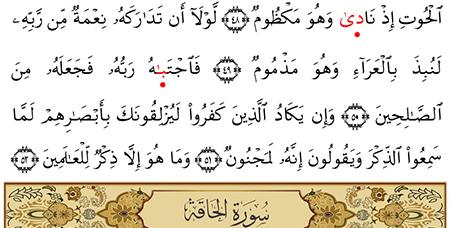 ٱلْحُوتِ إِذْ نَادَىٰ وَهُوَ مَكْظُومٌ ﴿٤٨﴾ لَّوْلَآ أَن تَدَارَكَهُۥ نِعْمَةٌ مِّن رَّبِّهِۦ
لَنُبِذَ بِٱلْعَرَآءِ وَهُوَ مَذْمُومٌ ﴿٤٩﴾ فَٱجْتَبَـٰهُ رَبُّهُۥ فَجَعَلَهُۥ مِنَ
ٱلصَّـٰلِحِينَ ﴿٥٠﴾ وَإِن يَكَادُ ٱلَّذِينَ كَفَرُوا۟ لَيُزْلِقُونَكَ بِأَبْصَـٰرِهِمْ لَمَّا
سَمِعُوا۟ ٱلذِّكْرَ وَيَقُولُونَ إِنَّهُۥ لَمَجْنُونٌ ﴿٥١﴾ وَمَا هُوَ إِلَّا ذِكْرٌ لِّلْعَـٰلَمِينَ ﴿٥٢﴾
سُورَةُ الحَاقَّةِ